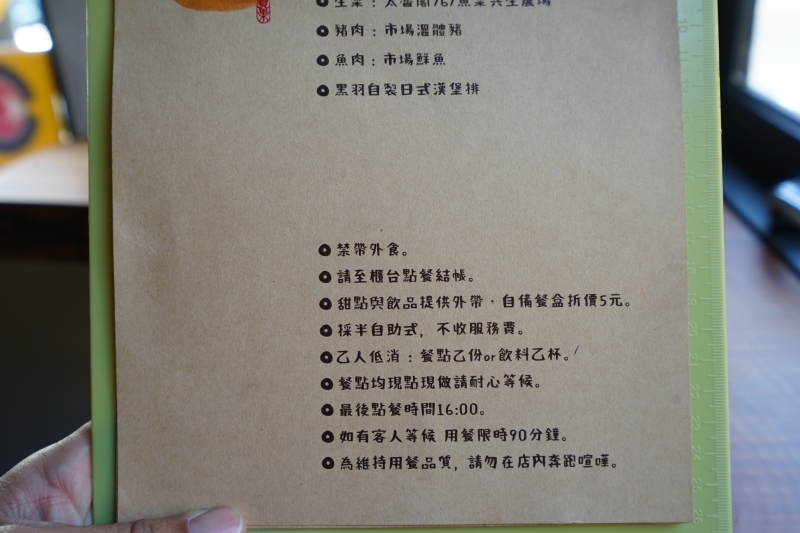 生菜：太魯閣767魚菜共生農場
豬肉：市場溫體豬
魚肉：市場鮮魚
黑羽自製日式漢堡排
禁帶外食。
請至櫃台點餐結帳。
甜點與飲品提供外帶，自備餐盒折價5元。
採半自助式，不收服務費。
乙人低消：餐點乙份or飲料乙杯。
餐點均現點現做請耐心等候。
最後點餐時間16:00。
如有客人等候 用餐限時90分鐘。
為維持用餐品質，請勿在店內奔跑喧嘩。